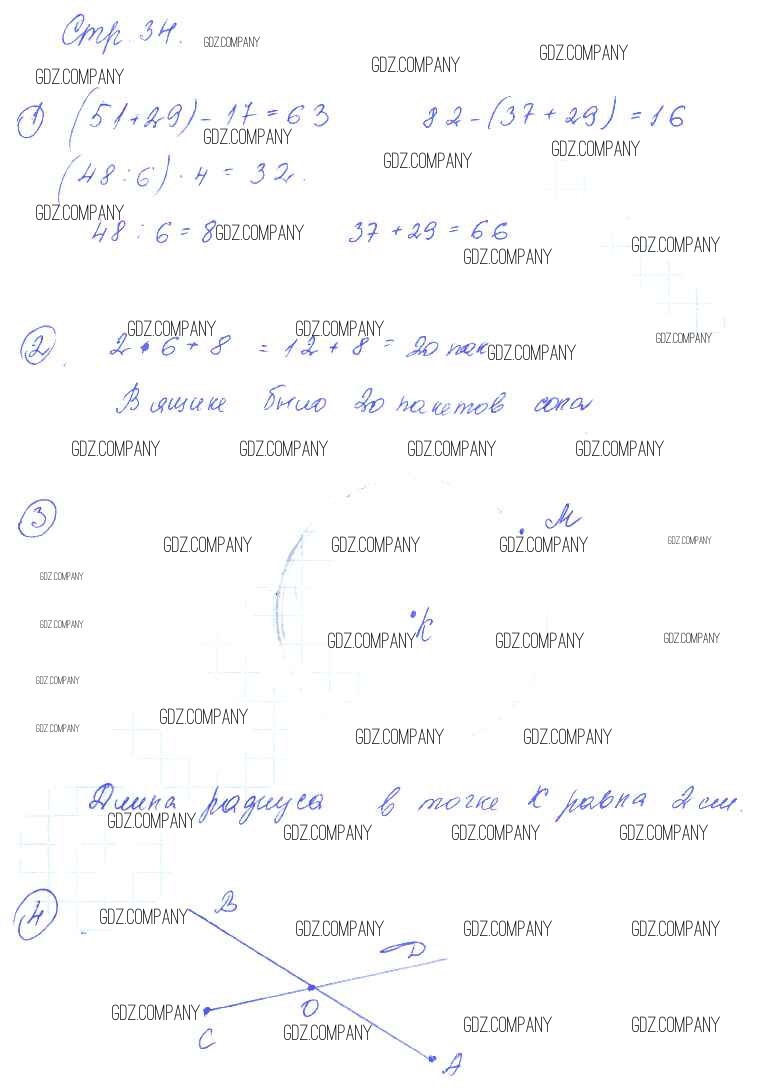 Стр. 34.
GDZ.COMPANY
GDZ.COMPANY GDZ.COMPANY GDZ.COMPANY
1 (51+29) - 17 = 63 82 - (37 + 29) = 16
GDZ.COMPANY GDZ.COMPANY GDZ.COMPANY
(48 : 6) · 4 = 32.
GDZ.COMPANY
48 : 6 = 8 GDZ.COMPANY 37 + 29 = 66
GDZ.COMPANY GDZ.COMPANY
GDZ.COMPANY GDZ.COMPANY GDZ.COMPANY
2. 2 · 6 + 8 = 12 + 8 = 20 пак GDZ.COMPANY
В ящике было 20 пакетов сока
GDZ.COMPANY GDZ.COMPANY GDZ.COMPANY GDZ.COMPANY
3 М
GDZ.COMPANY GDZ.COMPANY GDZ.COMPANY GDZ.COMPANY
GDZ.COMPANY
GDZ.COMPANY К
GDZ.COMPANY GDZ.COMPANY GDZ.COMPANY
GDZ.COMPANY
GDZ.COMPANY
GDZ.COMPANY GDZ.COMPANY GDZ.COMPANY
Длина радиуса в точке К равна 2 см.
GDZ.COMPANY GDZ.COMPANY GDZ.COMPANY GDZ.COMPANY
4 GDZ.COMPANY В
GDZ.COMPANY GDZ.COMPANY GDZ.COMPANY
D
GDZ.COMPANY О
С GDZ.COMPANY GDZ.COMPANY GDZ.COMPANY
А